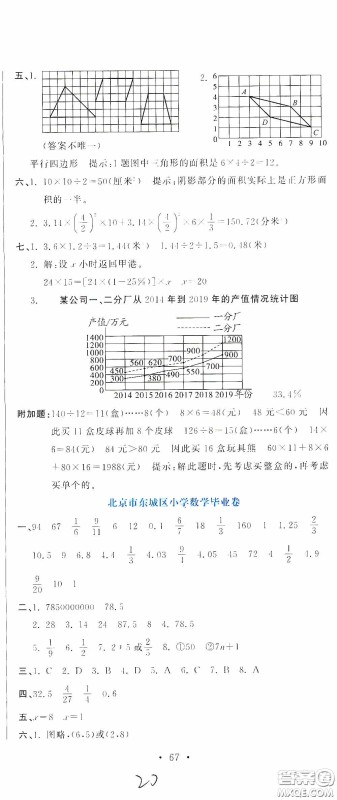 五、1.
2.
6
5
4
3
2
1
0
A
B
D
C
1 2 3 4 5 6 7 8 9 10
(答案不唯一)
平行四边形 提示:1题图中三角形的面积是6×4÷2=12。
六、1. 10×10÷2=50(厘米²) 提示:阴影部分的面积实际上是正方形面积的一半。
2. 3.14×(4/2)²×10+3.14×(4/2)²×6×1/3=150.72(分米³)
七、1. 3.6×1.2÷3=1.44(米) 1.44÷1.2÷1.5=0.8(米)
2. 解:设x小时返回甲港。
24×15=[24×(1-25%)]×x x=20
3. 某公司一、二分厂从2014年到2019年的产值情况统计图
产值/万元
一分厂
二分厂
1400
1200
1000
800
600
400
200
0
450 560 620 700 900 1200
300 380 490 660 900
2014 2015 2016 2017 2018 2019 年份
33.4%
附加题:140÷12=11(盒)……8(个) 8×6=48(元) 48元<60元 因
此买11盒皮球再加8个皮球 126÷8=15(盒)……6(个) 14×
6=84(元) 84元>80元 因此买16盒玩具熊 60×11+8×6
+80×16=1988(元) 提示:购买时,先考虑买整盒的,再考虑
买单个的。
北京市东城区小学数学毕业卷
一、94 67 1/6 9/11 6 12 0.1 6/7 18 1/3 160 1 1.25 2/3
10.5 9 0.8 4/3 1/4 75 40 0.09 4 2 1/2 4 0.9
9/20 10 1 0
二、1. 7850000000 78.5
2. 28 3. 14 24 87.5 8 4. 78.5
5. 1/9 6. 1/2 7. 2:5或2/5 8. ①50 ②7n+1
三、1. C 2. D 3. C 4. A 5. B 6. A 7. B 8. D
四、32.5 4/27 1/4 0.6
五、x=8 x=1
六、1. 图略,(6,5)或(2,8)
• 67 •
20
答案圈